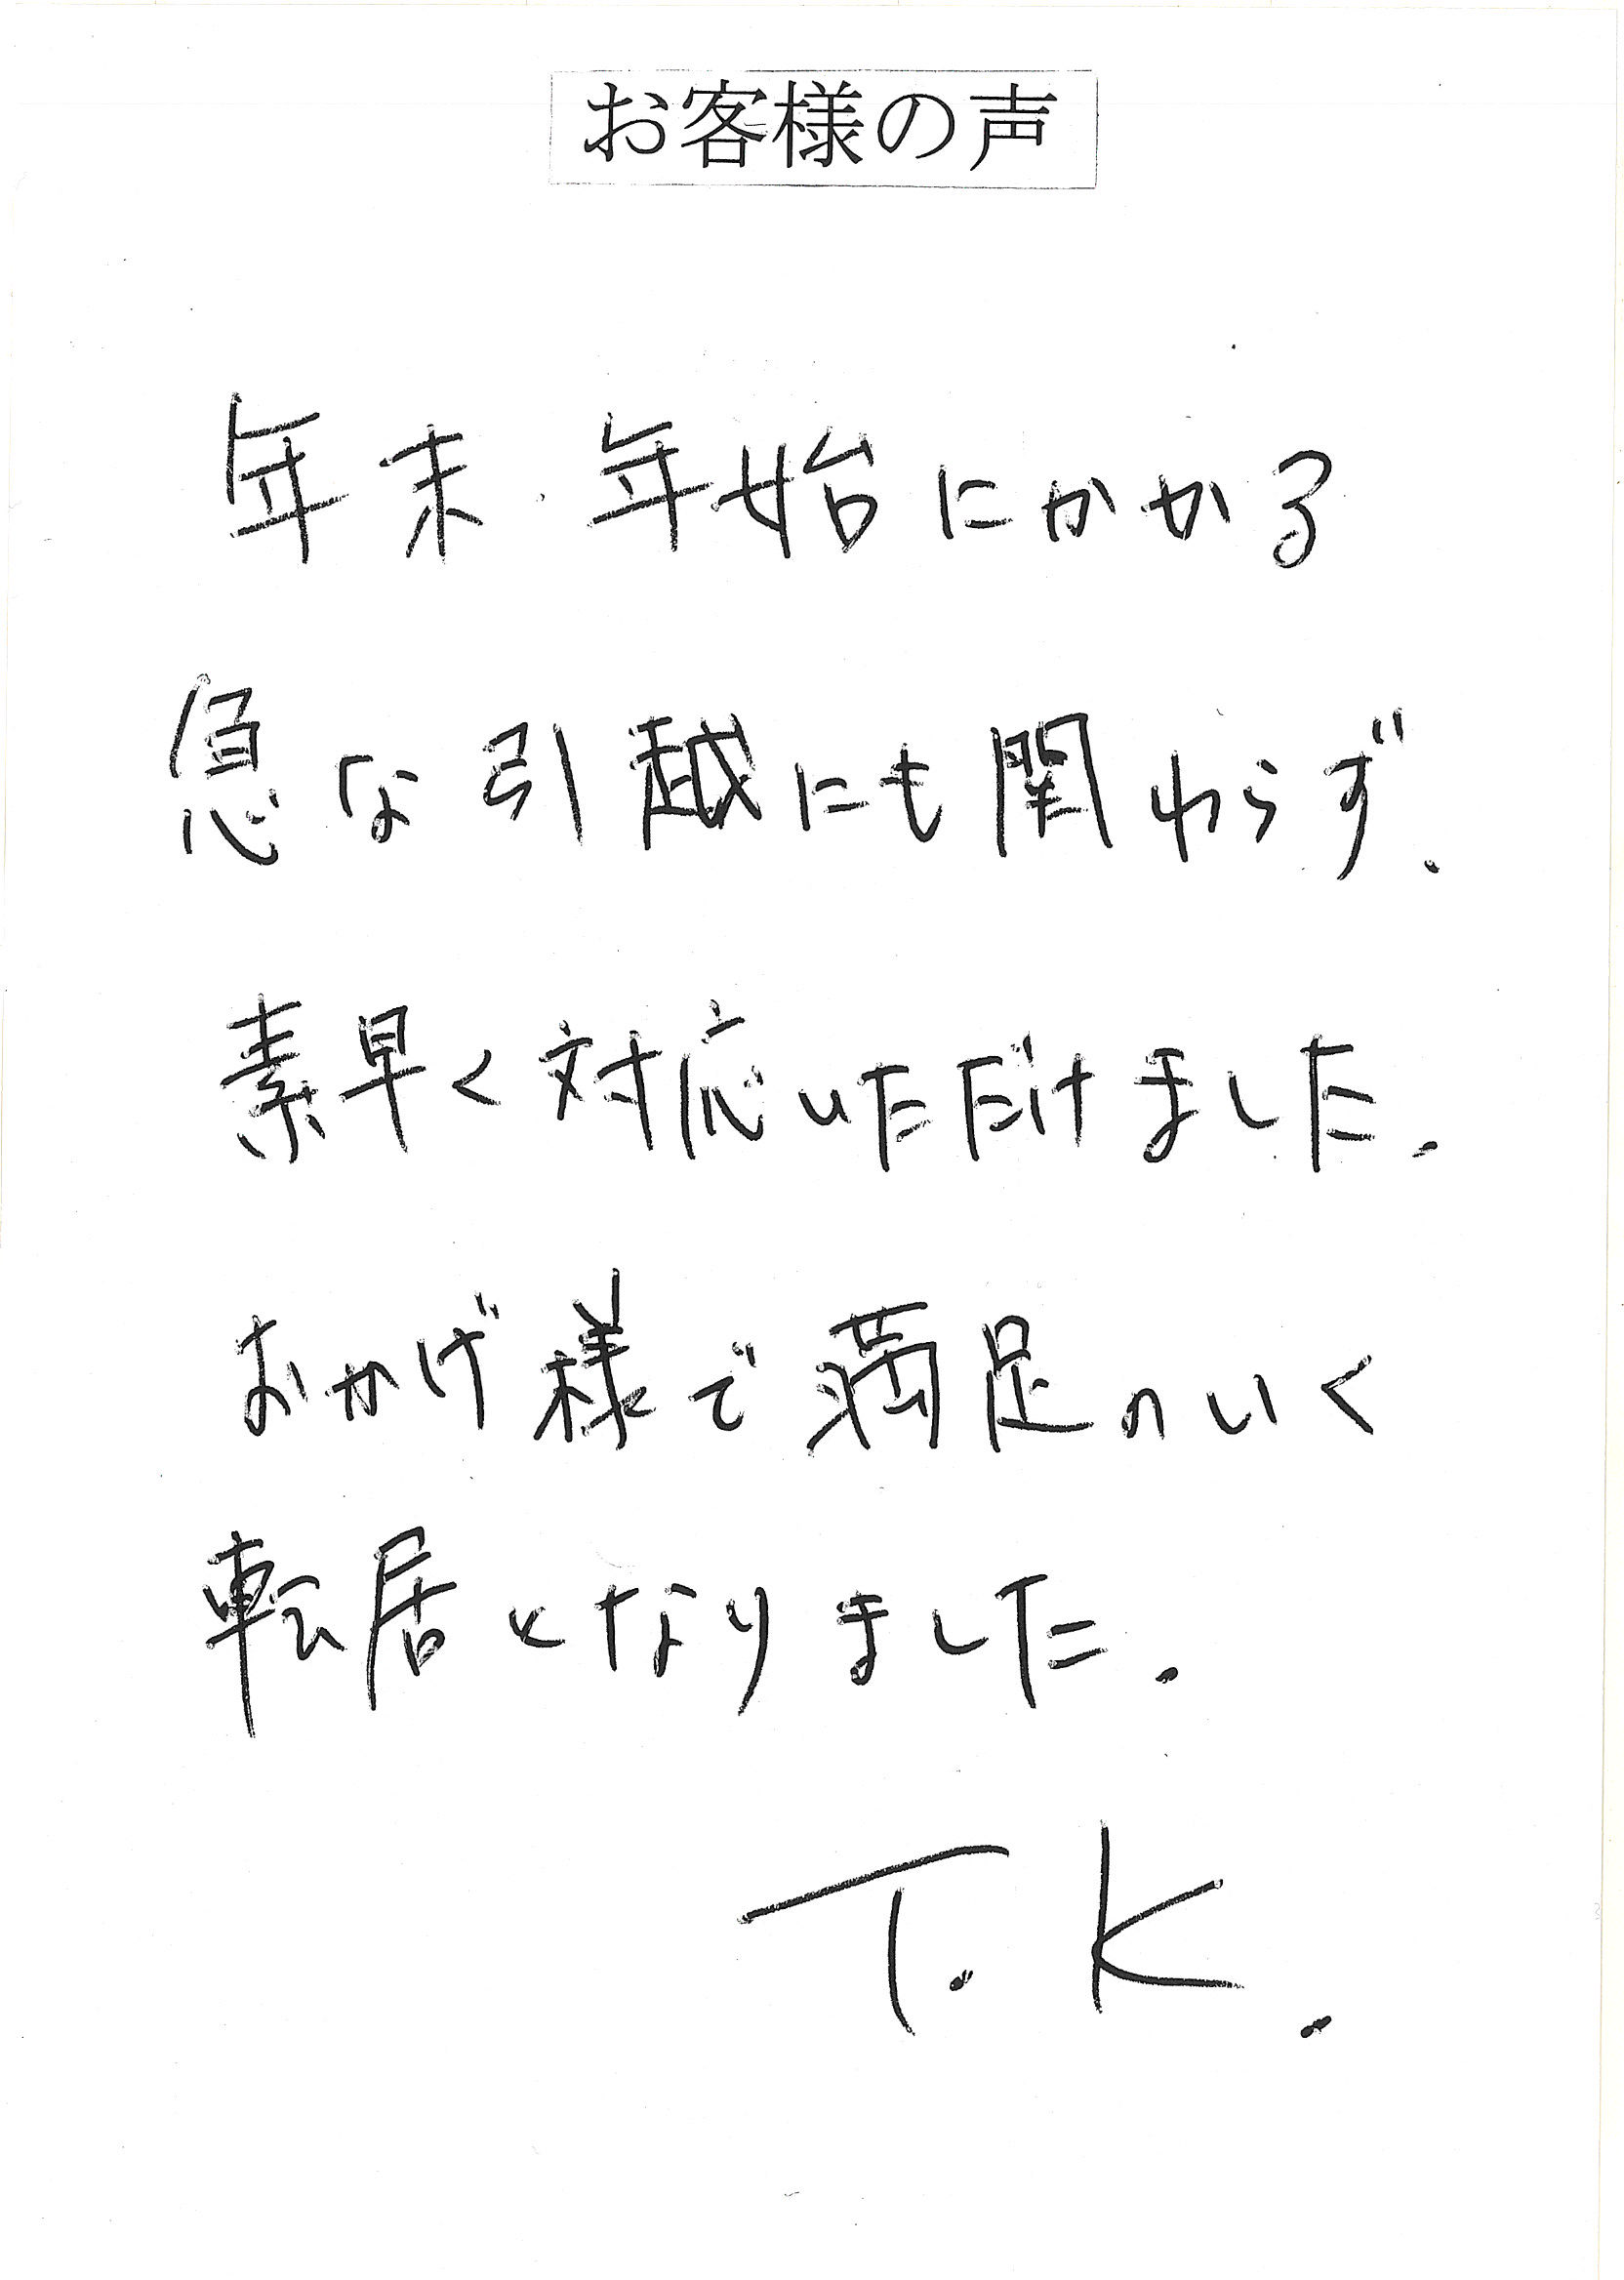 お客様の声
年末・年始にかかる
急な引越にも関わらず、
素早く対応いただけました。
おかげ様で満足のいく
転居となりました。
T.K.